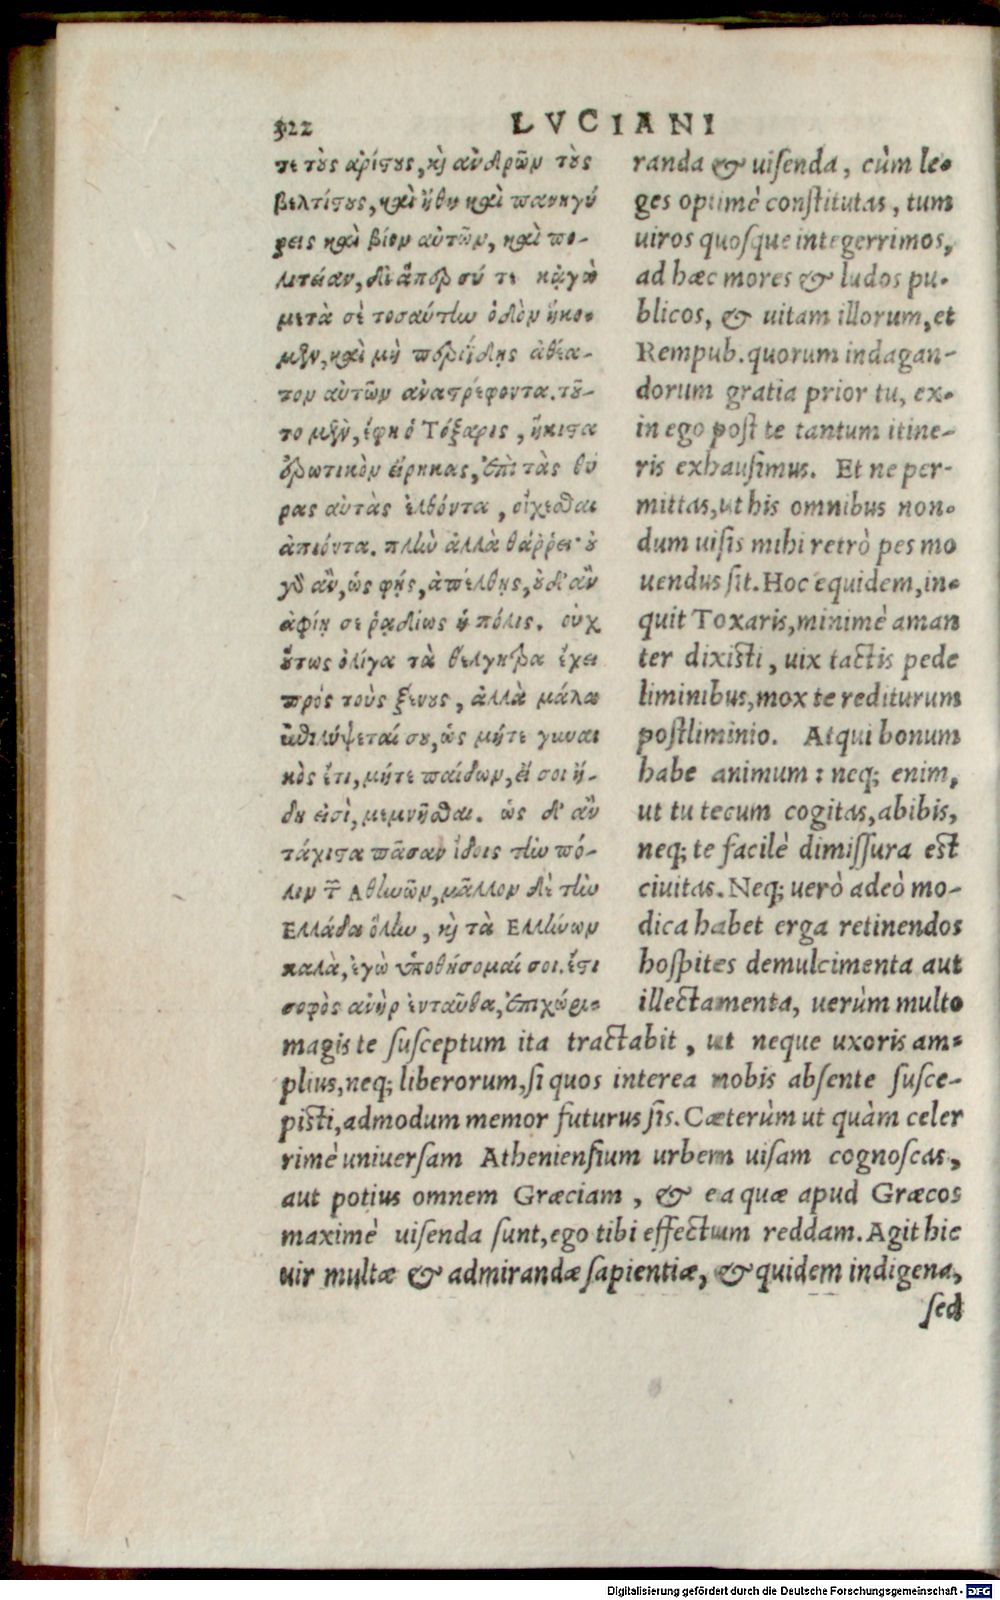 322 LVCIANI
τε τοὺς ἀρίστους, κὶ ἀνδρῶν τοὺς
βελτίστους, καὶ ἤθη καὶ πανηγύ
ρεις καὶ βίον αὐτῶν, καὶ πο-
λιτείαν, δι' ἅπερ σύ τε κᾀγὼ
μετὰ σὲ τοσαύτην ὁδὸν ἥκο-
μεν, καὶ μὴ περιΐδῃς ἀθέα-
τον αὐτῶν ἀναστρέφοντα. τοῦ-
το μὲν, ἔφη ὁ Τόξαρις, ἥκιστα
ἐρωτικὸν εἴρηκας, ἐπὶ τὰς θύ
ρας αὐτὰς ἐλθόντα, οἴχεσθαι
ἀπιόντα. πλὴν ἀλλὰ θάῤῥει· οὐ
γὸ ἂν, ὡς φῂς, ἀπέλθῃς, οὐδ' ἂν
ἀφίῃ σε ῥᾳδίως ἡ πόλις. οὐχ
οὕτως ὀλίγα τὰ θέλγητρα ἔχει
πρὸς τοὺς ξένους, ἀλλὰ μάλα
ἐπιλήψεταί σου, ὡς μήτε γυναι
κὸς ἔτι, μήτε παίδων, εἴ σοι ἤ-
δη εἰσὶ, μεμνῆσθαι. ὡς δ' ἂν
τάχιστα πᾶσαν ἴδοις τὴν πό-
λιν τ Αθηνῶν, μᾶλλον δὲ τὴν
Ελλάδα ὅλην, κὶ τὰ Ελλήνων
καλὰ, ἐγὼ ὑποθήσομαί σοι. ἔστι
σοφὸς ἀνὴρ ἐνταῦθα, ἐπιχώρι-
randa & uisenda, cùm le-
ges optimè constitutas, tum
uiros quosque integerrimos,
ad hæc mores & ludos pu-
blicos, & uitam illorum, et
Rempub. quorum indagan-
dorum gratia prior tu, ex-
in ego post te tantum itine-
ris exhausimus. Et ne per-
mittas, ut his omnibus non-
dum uisis mihi retrò pes mo
uendus sit. Hoc equidem, in-
quit Toxaris, minimè aman
ter dixisti, uix tactis pede
liminibus, mox te rediturum
postliminio. Atqui bonum
habe animum: neq; enim,
ut tu tecum cogitas, abibis,
neq; te facilè dimissura est
ciuitas. Neq; uerò adeò mo-
dica habet erga retinendos
hospites demulcimenta aut
illectamenta, uerùm multo
magis te susceptum ita tractabit, ut neque uxoris am-
plius, neq; liberorum, si quos interea nobis absente susce-
pisti, admodum memor futurus sis. Cæterùm ut quàm celer
rimè uniuersam Atheniensium urbem uisam cognoscas,
aut potius omnem Græciam, & ea quæ apud Græcos
maximè uisenda sunt, ego tibi effectum reddam. Agit hic
uir multæ & admirandæ sapientiæ, & quidem indigena,
sed
Digitalisierung gefördert durch die Deutsche Forschungsgemeinschaft - DFG